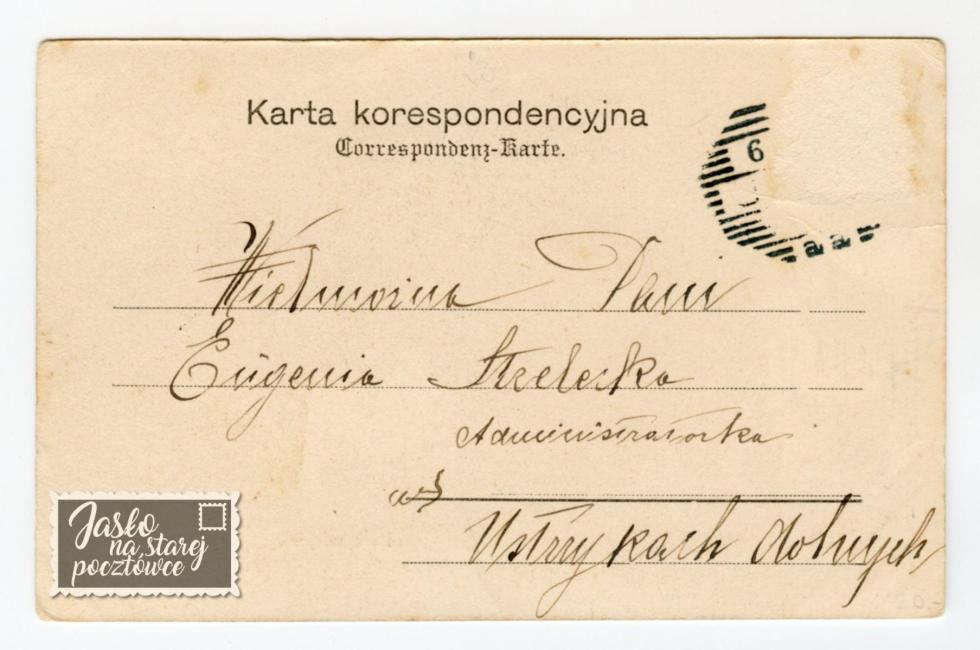 Karta korespondencyjna
Correspondenz-Karte.
6
Wielmożna Pani
Eugenia Strzelecka
Administratorka
w
Ustrzykach dolnych
Jasło
na starej
pocztówce